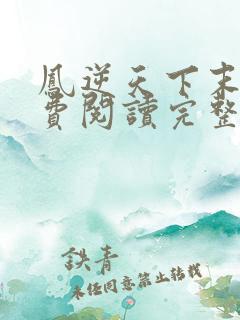 鳳逆天下末
費閱讀完整
鉄青
未經同意禁止转载